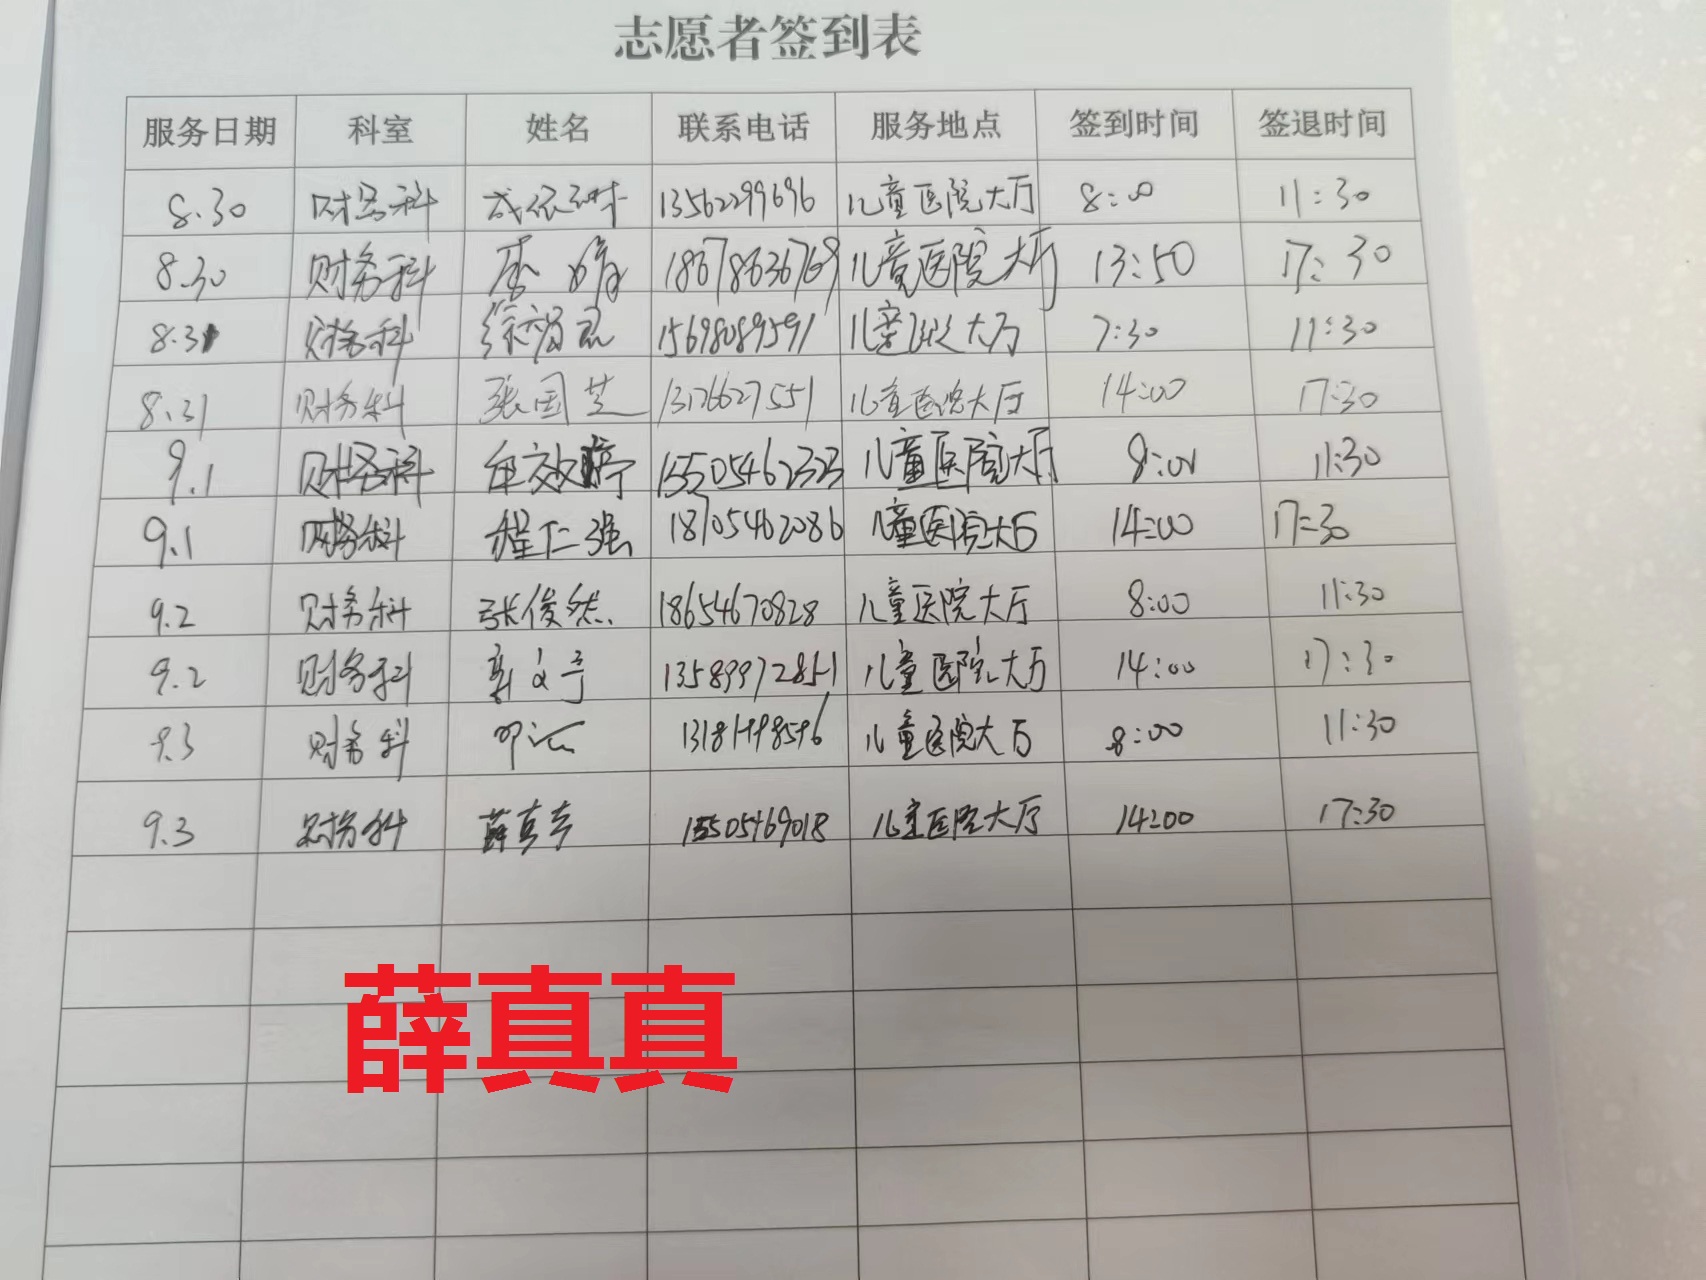 志愿者签到表
服务日期 科室 姓名 联系电话 服务地点 签到时间 签退时间
8.30 财务科 13562299696 儿童医院大厅 8:00 11:30
8.30 财务科 李 婧 18678636769 儿童医院大厅 13:50 17:30
8.31 财务科 15698089591 儿童医院大厅 7:30 11:30
8.31 财务科 张国芝 13176627551 儿童医院大厅 14:00 17:30
9.1 财务科 15505462323 儿童医院大厅 8:00 11:30
9.1 财务科 程仁强 18705462086 儿童医院大厅 14:00 17:30
9.2 财务科 张俊然 18654670828 儿童医院大厅 8:00 11:30
9.2 财务科 13589972851 儿童医院大厅 14:00 17:30
9.3 财务科 儿童医院大厅 8:00 11:30
9.3 财务科 薛真真 15505469018 儿童医院大厅 14:00 17:30
薛真真